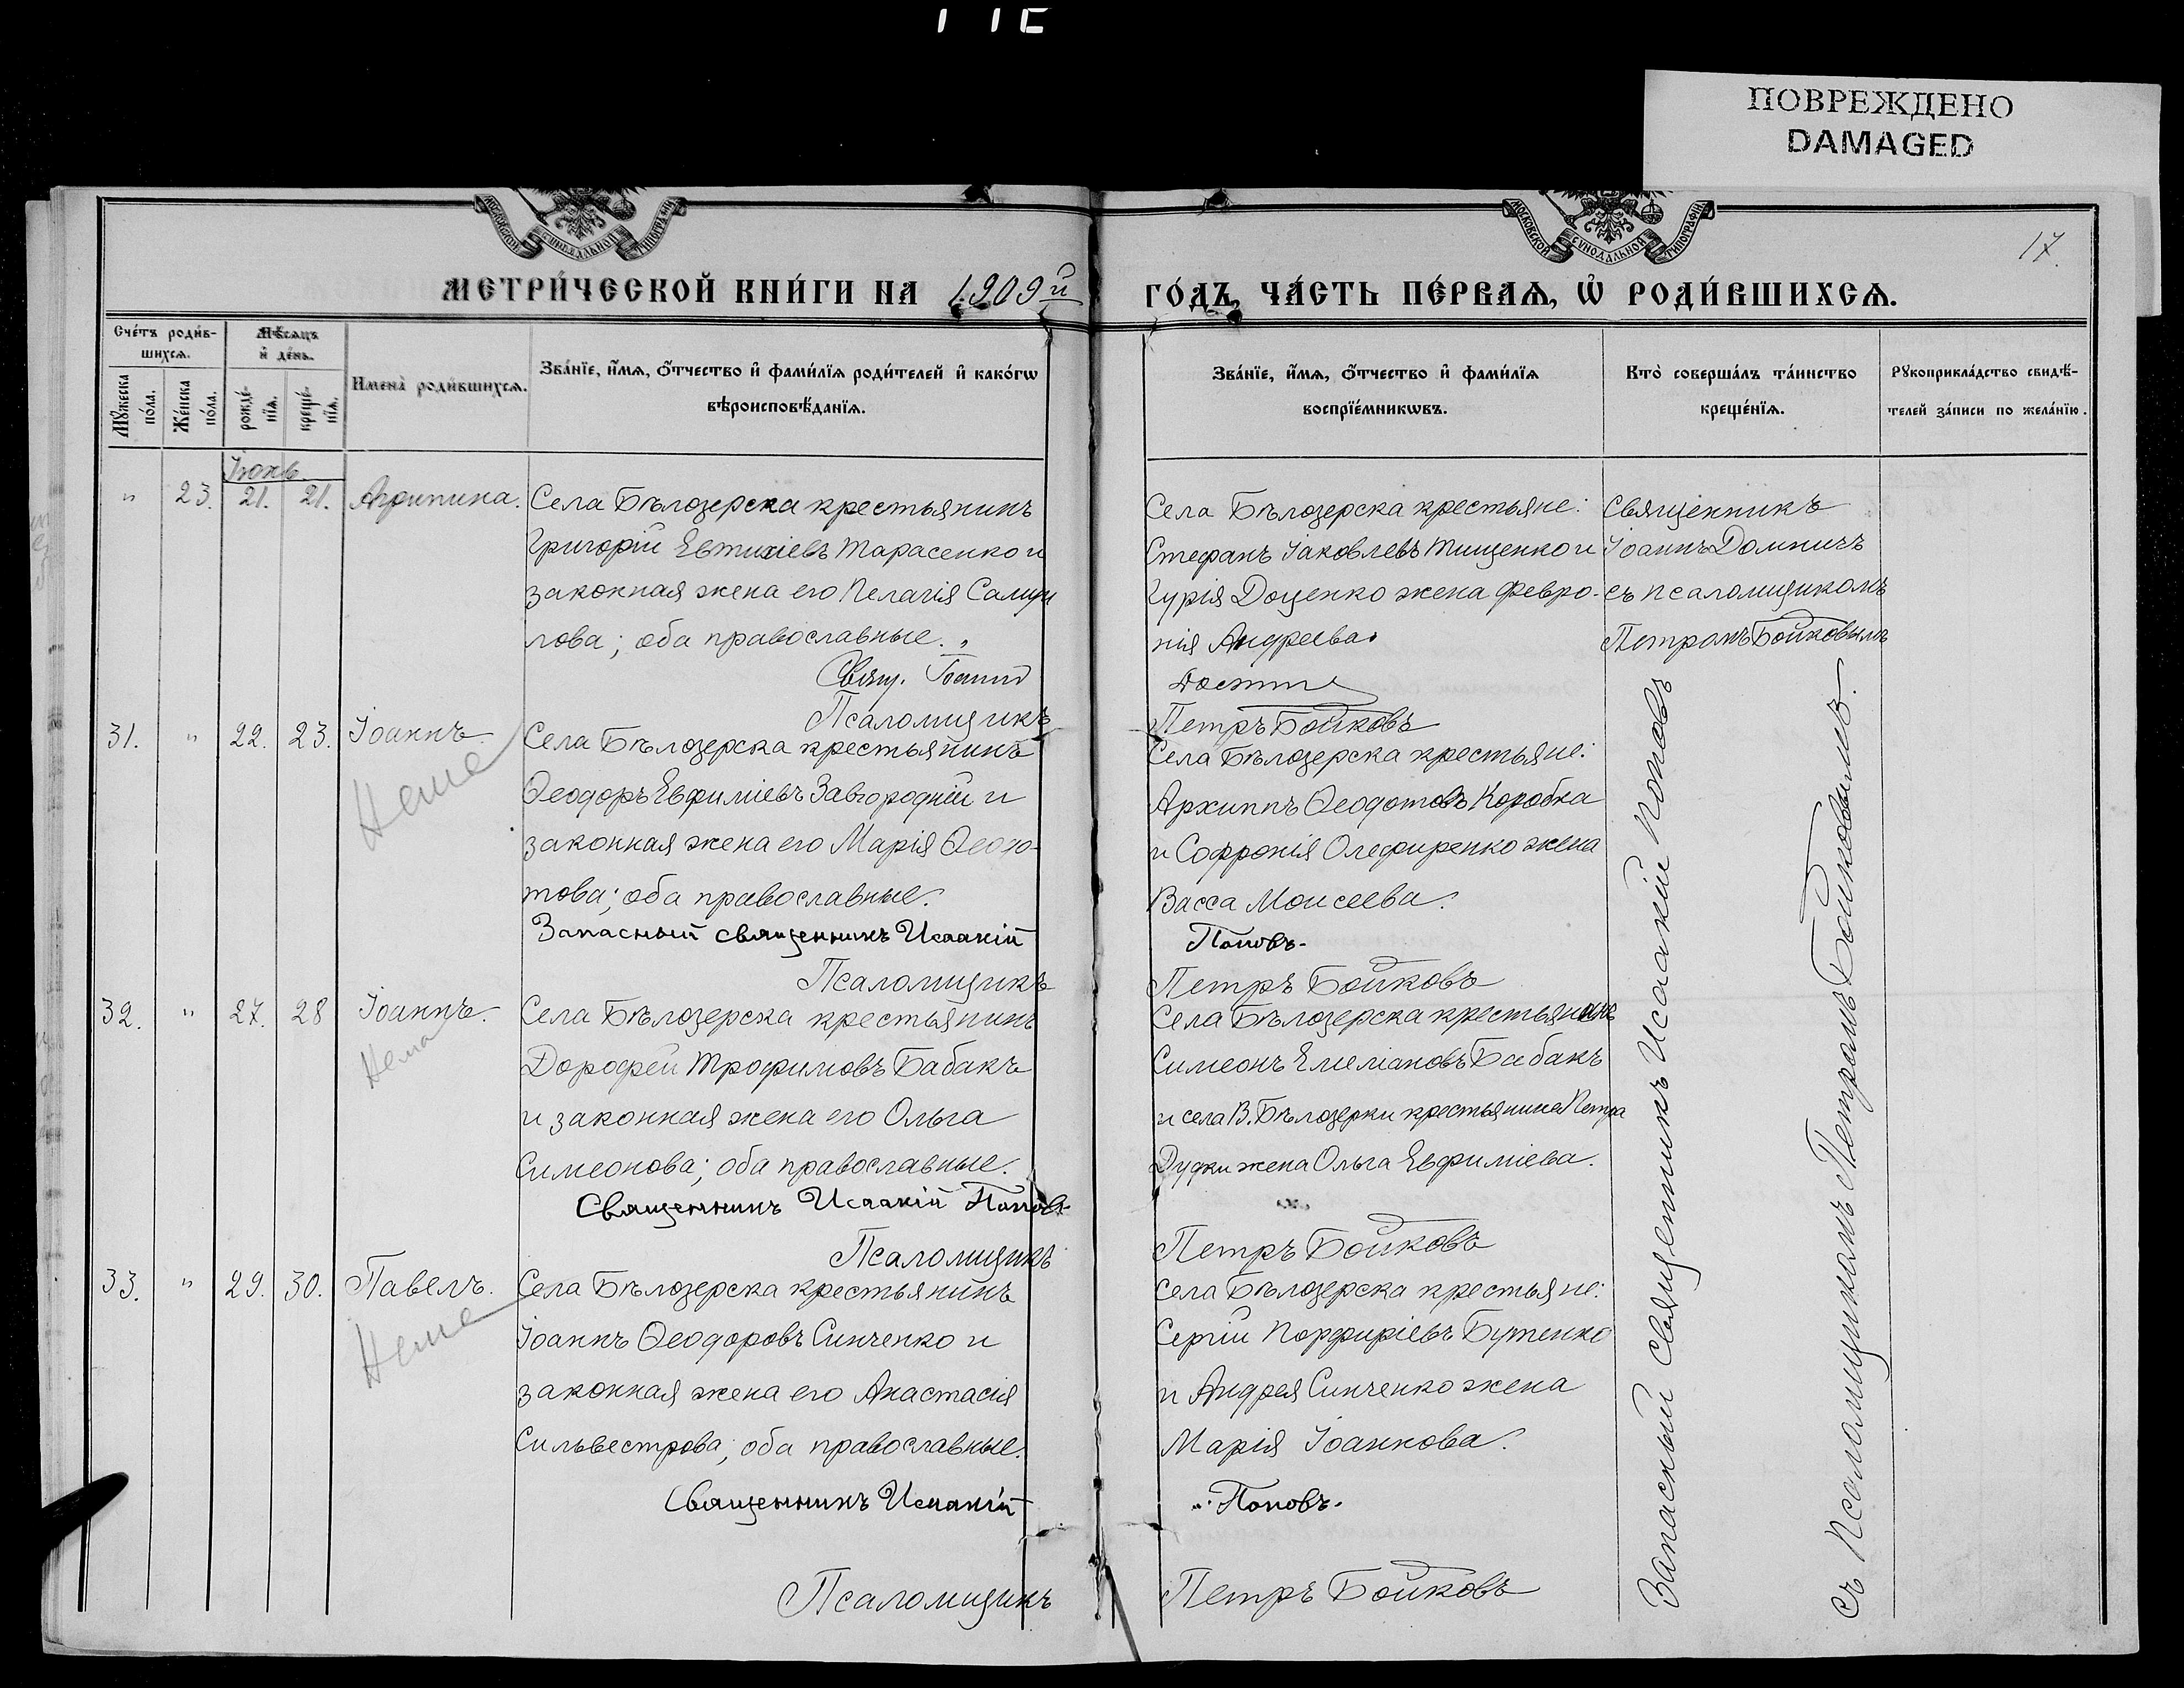 ПОВРЕЖДЕНО
DAMAGED
МОСКОВСКОЙ СѴНОДАЛЬНОЙ ТИПОГРАФІИ
МОСКОВСКОЙ СѴНОДАЛЬНОЙ ТИПОГРАФІИ
17.
МЕТРИ́ЧЕСКОЙ КНИ́ГИ НА 1909й ГО́ДЪ, ЧА́СТЬ ПЕ́РВАѦ, Ѡ҆ РОДИ́ВШИХСѦ.
Сче́тъ роди́в-
шихсѧ.
Мѣ́сѧцъ
и҆ де́нь.
Мꙋ́жеска
по́ла.
Же́нска
по́ла.
рожде́-
нїѧ.
креще́-
нїѧ.
Имена̀ роди́вшихсѧ.
Зва́нїе, и҆́мѧ, ѻ҆́тчество и҆ фами́лїѧ роди́телей и҆ како́гѡ
вѣроисповѣ́данїѧ.
Зва́нїе, и҆́мѧ, ѻ҆́тчество и҆ фами́лїѧ
воспрїе́мникѡвъ.
Кто̀ соверша́лъ та́инство
креще́нїѧ.
Рꙋкоприкла́дство свидѣ́-
телей за́писи по жела́нїю.
Іюнь
" 23. 21. 21. Агрипина. Села Бѣлозерска крестьянинъ
Григорій Евтихіевъ Тарасенко и
законная жена его Пелагія Самуи
лова; оба православные.
Свящ. Іоаннъ
Псаломщикъ
Села Бѣлозерска крестьяне:
Стефанъ Іаковлевъ Тищенко и
Гурія Доценко жена Февро-
нія Андреева.
Петръ Бойковъ
Священникъ
Іоаннъ Домничъ
съ псаломщикомъ
Петромъ Бойковымъ
31. " 22. 23. Іоаннъ. Села Бѣлозерска крестьянинъ
Ѳеодоръ Евфиміевъ Завгородній и
законная жена его Марія Ѳеодо-
това; оба православные.
Запасный священникъ Исаакій
Псаломщикъ
Села Бѣлозерска крестьяне:
Архиппъ Ѳеодотовъ Коробка
и Софронія Олефиренко жена
Васса Моисеева.
Поповъ.
Петръ Бойковъ
32. " 27. 28 Іоаннъ. Села Бѣлозерска крестьянинъ
Нема
Дорофей Трофимовъ Бабакъ
и законная жена его Ольга
Симеонова; оба православные.
Священникъ Исаакій Поповъ
Псаломщикъ
Села Бѣлозерска крестьянинъ
Симеонъ Емеліановъ Бабакъ
и села В. Бѣлозерки крестьянина Петра
Дудки жена Ольга Евфиміева.
Петръ Бойковъ
33. " 29. 30. Павелъ. Села Бѣлозерска крестьянинъ
Іоаннъ Ѳеодоровъ Синченко и
законная жена его Анастасія
Сильвестрова; оба православные.
Священникъ Исаакій
Псаломщикъ
Села Бѣлозерска крестьяне:
Сергій Порфиріевъ Бутенко
и Андрея Синченко жена
Марія Іоаннова.
Поповъ.
Петръ Бойковъ
Запасный священникъ Исаакій Поповъ
съ Псаломщикомъ Петромъ Бойковымъ.